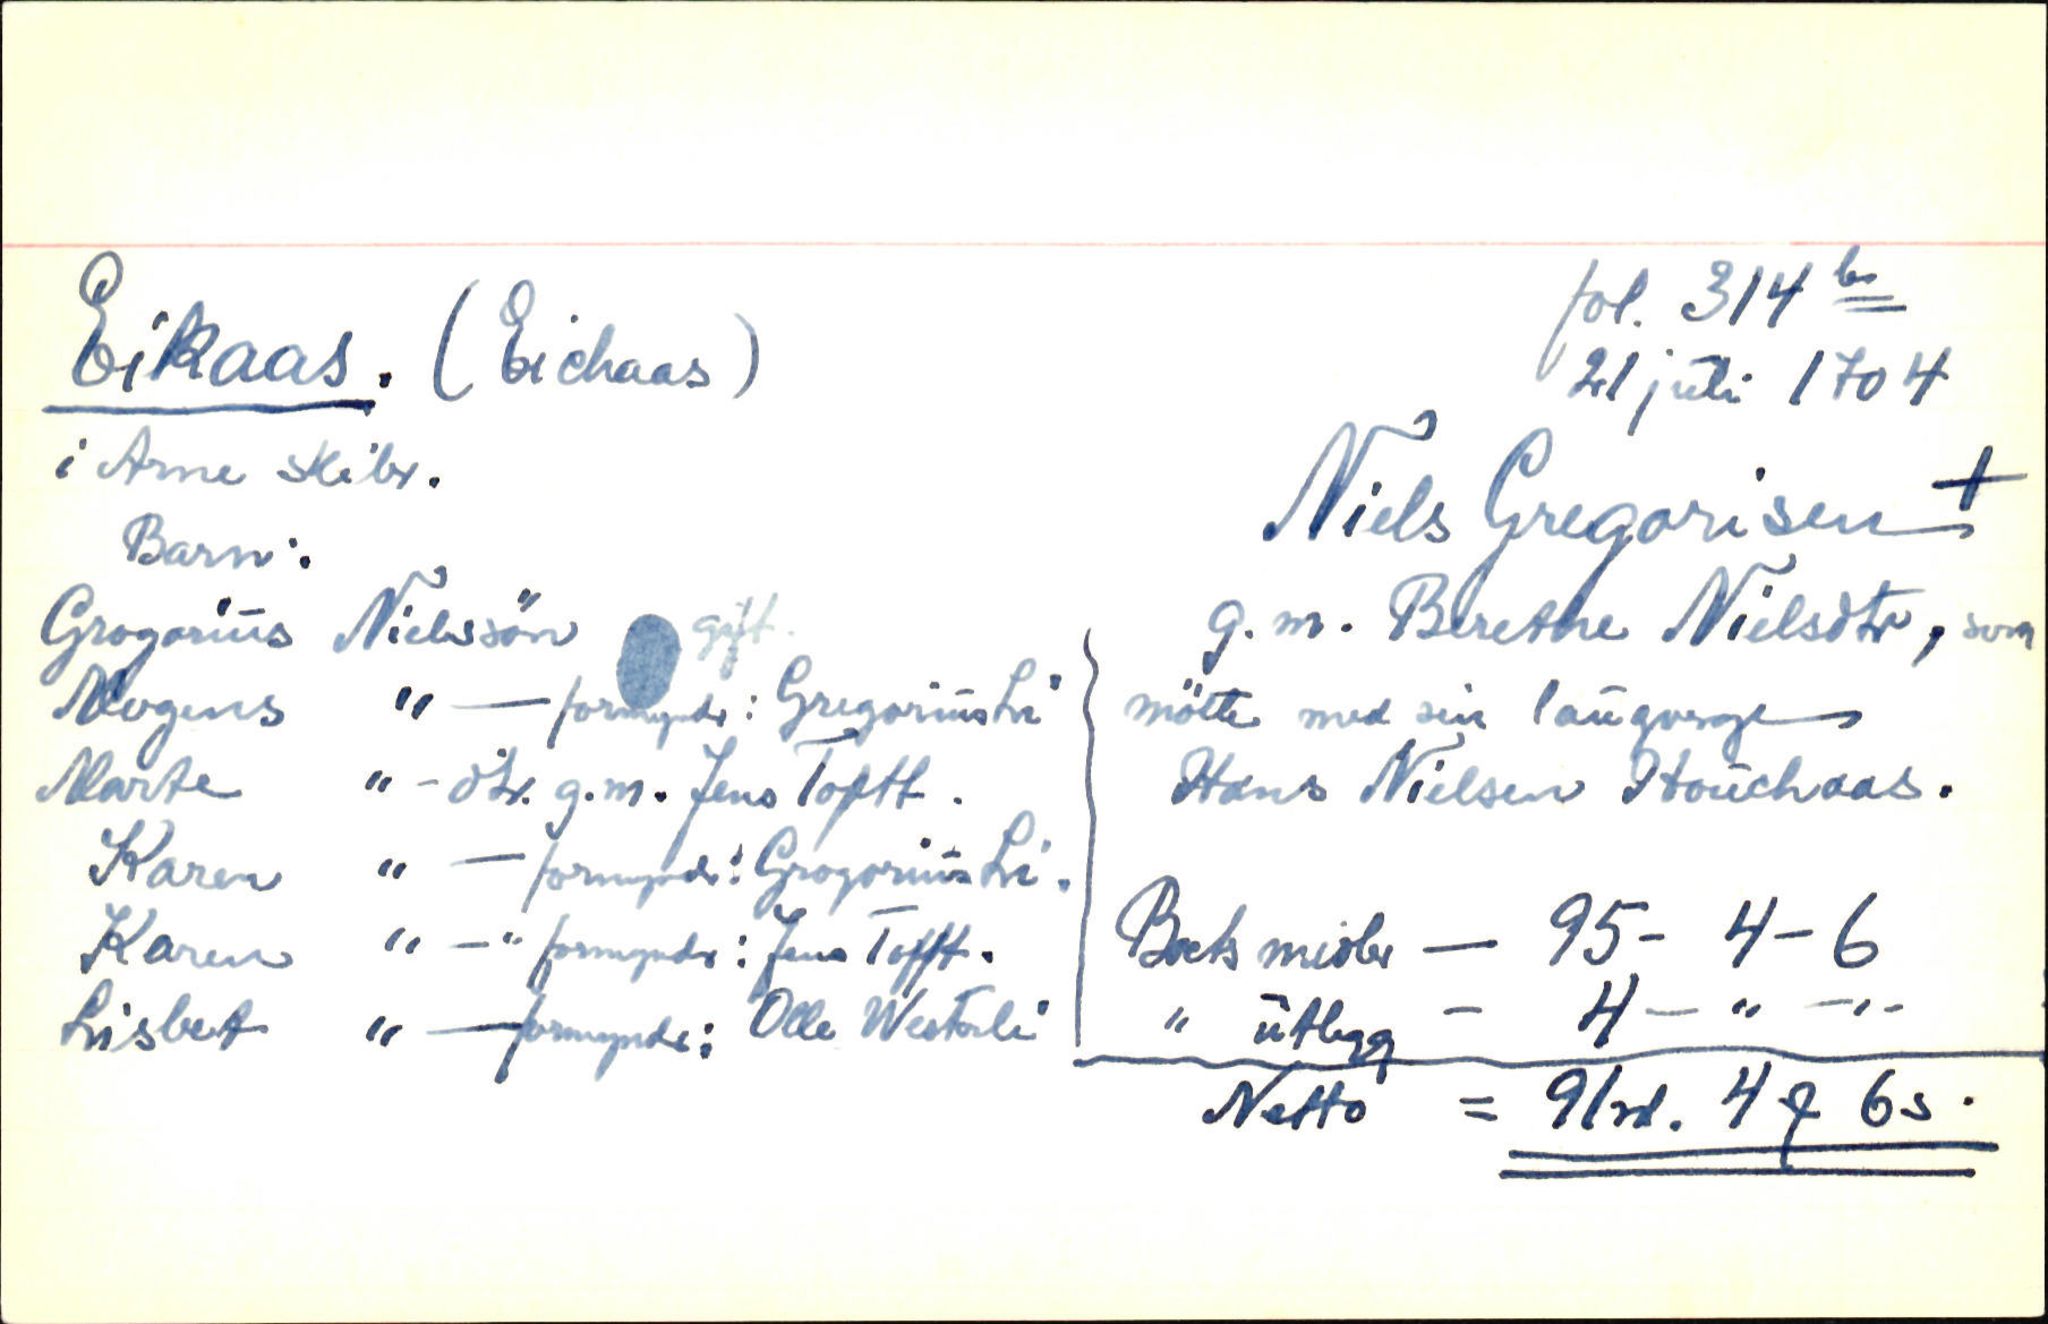 Eikaas. (Eichaas)
fol. 314 b
21 juli 1704
i Arne skibr.
Niels Gregorisen +
Barn:
g.m. Berethe Nielsdtr, som
mötte med sin laugverge
Hans Nielsen Houchaas.
Grogorius Nielssön gift.
Mogens " — formyndr: Gregorius Li
Marte " - dtr. g.m. Jens Tofft.
Karen " — formyndr: Grogorius Li.
Karen " —" formyndr: Jens Tofft.
Lisbet " — formyndr: Olle Westerli
Boets midler — 95 - 4 - 6
" utlegg - 4 — " — " -
Netto = 91 rd. 4 ƍ 6 s.